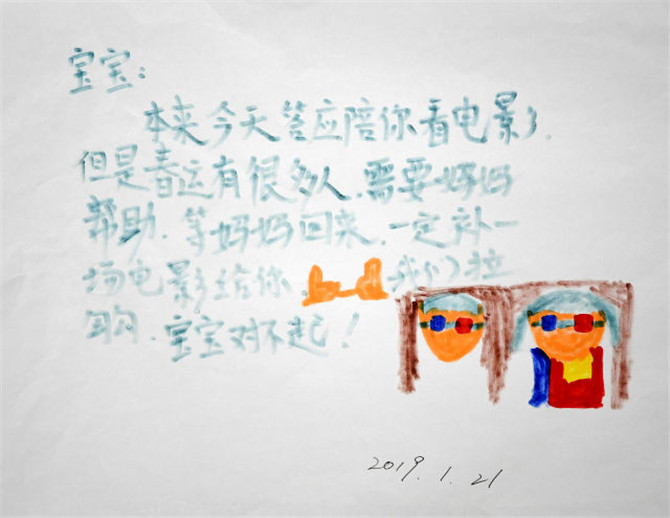 宝宝：
本来今天答应陪你看电影.
但是春运有很多人.需要妈妈
帮助.等妈妈回来.一定补一
场电影给你.我们拉
勾.宝宝对不起！
2019.1.21